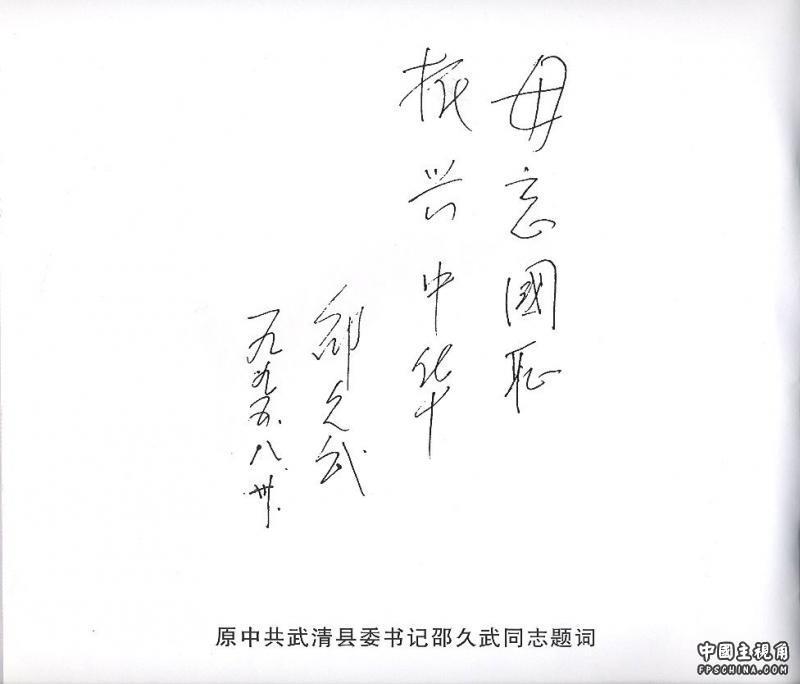 毋忘國耻
振兴中华
邵久武
一九九五.八.卅.
原中共武清县委书记邵久武同志题词
中國主視角
FPSCHINA.COM